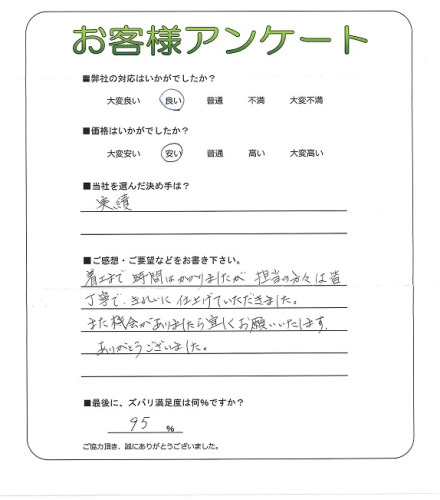 お客様アンケート
■弊社の対応はいかがでしたか?
大変良い 良い 普通 不満 大変不満
■価格はいかがでしたか?
大変安い 安い 普通 高い 大変高い
■当社を選んだ決め手は?
実績
■ご感想・ご要望などをお書き下さい。
着工まで時間はかかりましたが 担当の方々は皆
丁寧で、きれいに仕上げていただきました。
また機会がありましたら宜しくお願いいたします。
ありがとうございました。
■最後に、ズバリ満足度は何%ですか?
95 %
ご協力頂き、誠にありがとうございました。